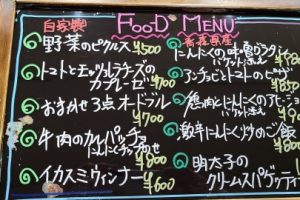 FOOD MENU
自家製
野菜のピクルス ¥500
トマトとモッツァレラチーズの
カプレーゼ ¥700
おまかせ3点オードブル
¥700
牛肉のカルパッチョ
にんにくチップのせ
¥800
イカスミウィンナー
¥600
青森県産
にんにくの
バゲット添え
アンチョビとトマトの
¥850
鶏肉とにんにくの
バゲット添え
激辛にんにく炒めご飯
¥800
明太子の
クリームスパゲッティ